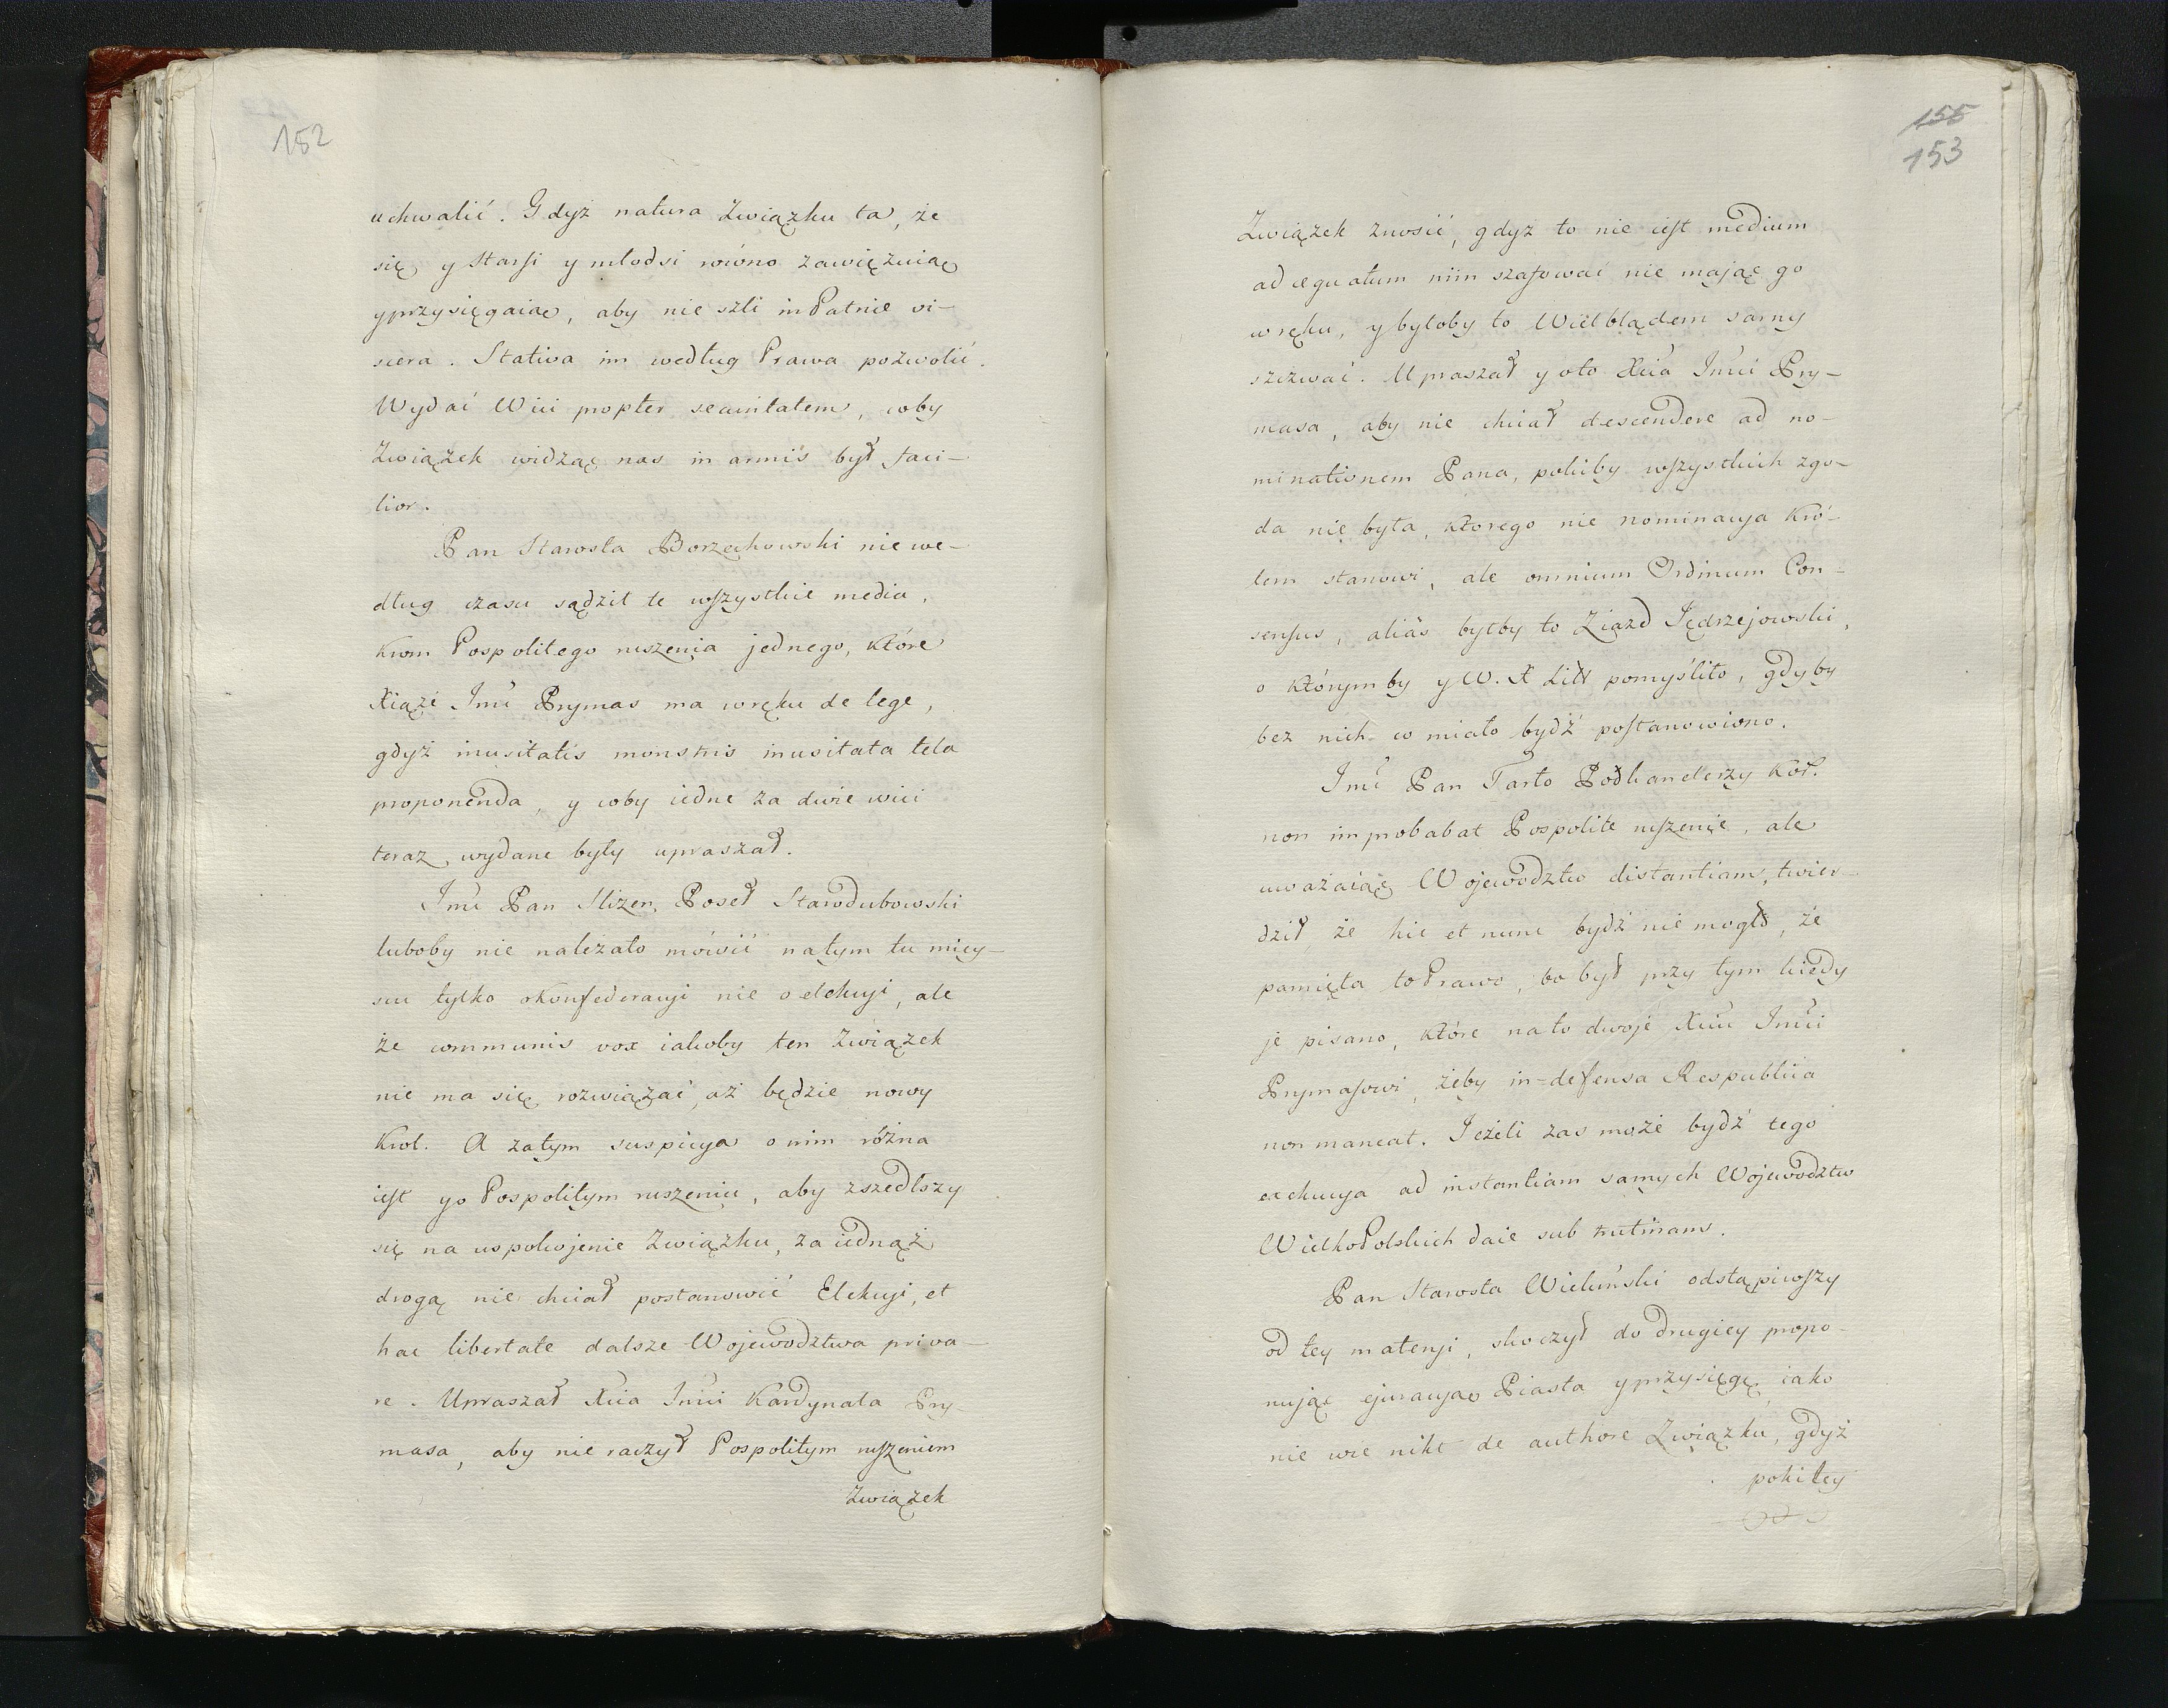 152
uchwalić. Gdyż natura Związku ta, że
się y starsi y młodsi równo zawięzuiąc
y przysięgaiąc, aby nie szli in Patriæ vi-
scera. Stativa im według Prawa pozwolić.
Wydać Wici propter securitatem, coby
Związek widząc nas in armis był faci-
lior.
Pan Starosta Borzęchowski nie we-
dług czasu sądził te wszystkie media,
krom Pospolitego ruszenia jednego, które
Xiąże Jmć Prymas ma w ręku de lege,
gdyż inusitatis monstris inusitata tela
proponenda, y coby iedne za dwie wici
teraz wydane były upraszał.
Jmć Pan Slizen, Poseł Starodubowski
luboby nie należało mówić na tym tu miey-
scu tylko o Konfederacyi nie o elekcyi, ale
że communis vox iakoby ten Związek
nie ma się rozwiązać, aż będzie nowy
Krol. A zatym suspicya o nim różna
iest y o Pospolitym ruszeniu, aby zszedłszy
się na uspokojenie Związku, za iednąż
drogą nie chciał postanowić Elekcyi, et
hac libertate dalsze Województwa priva-
re. Upraszał Xcia Jmci Kardynała Pry-
masa, aby nie raczył Pospolitym ruszeniem
Związek
155
153
Związek znosić, gdyż to nie iest medium
adæquatum niim szafować nie mając go
w ręku, y byłoby to Wielbłądem sarny
szczwać. Upraszał y oto Xcia Jmci Pry-
masa, aby nie chciał descendere ad no-
minationem Pana, pokiby wszystkich zgo-
da nie była, ktorego nie nominacya Kró-
lem stanowi, ale omnium Ordinum Con-
sensus, aliàs byłby to Ziazd Jędrzejowski,
o którymby y W. X Litt pomyśliło, gdyby
bez nich co miało bydź postanowiono.
Jmć Pan Tarło Podkanclerzy Kor.
non improbabat Pospolite ruszenie, ale
uważaiąc Województw distantiam, twier-
dził, że hic et nunc bydź nie mogło, że
pamięta to Prawo, bo był przy tym kiedy
je pisano, które na to dwoje Xciu Jmci
Prymasowi, żeby in-defensa Respublica
non maneat. Jeżeli zas może bydź tego
exekucya ad instantiam samych Województw
WielkoPolskich daie sub trutinam.
Pan Starosta Wieluński odstąpiwszy
od tey materyi, skoczył do drugiey propo-
nując ejuracyae Piasta y przysięgę, iako
nie wie nikt de authore Związku, gdyż
poki tey